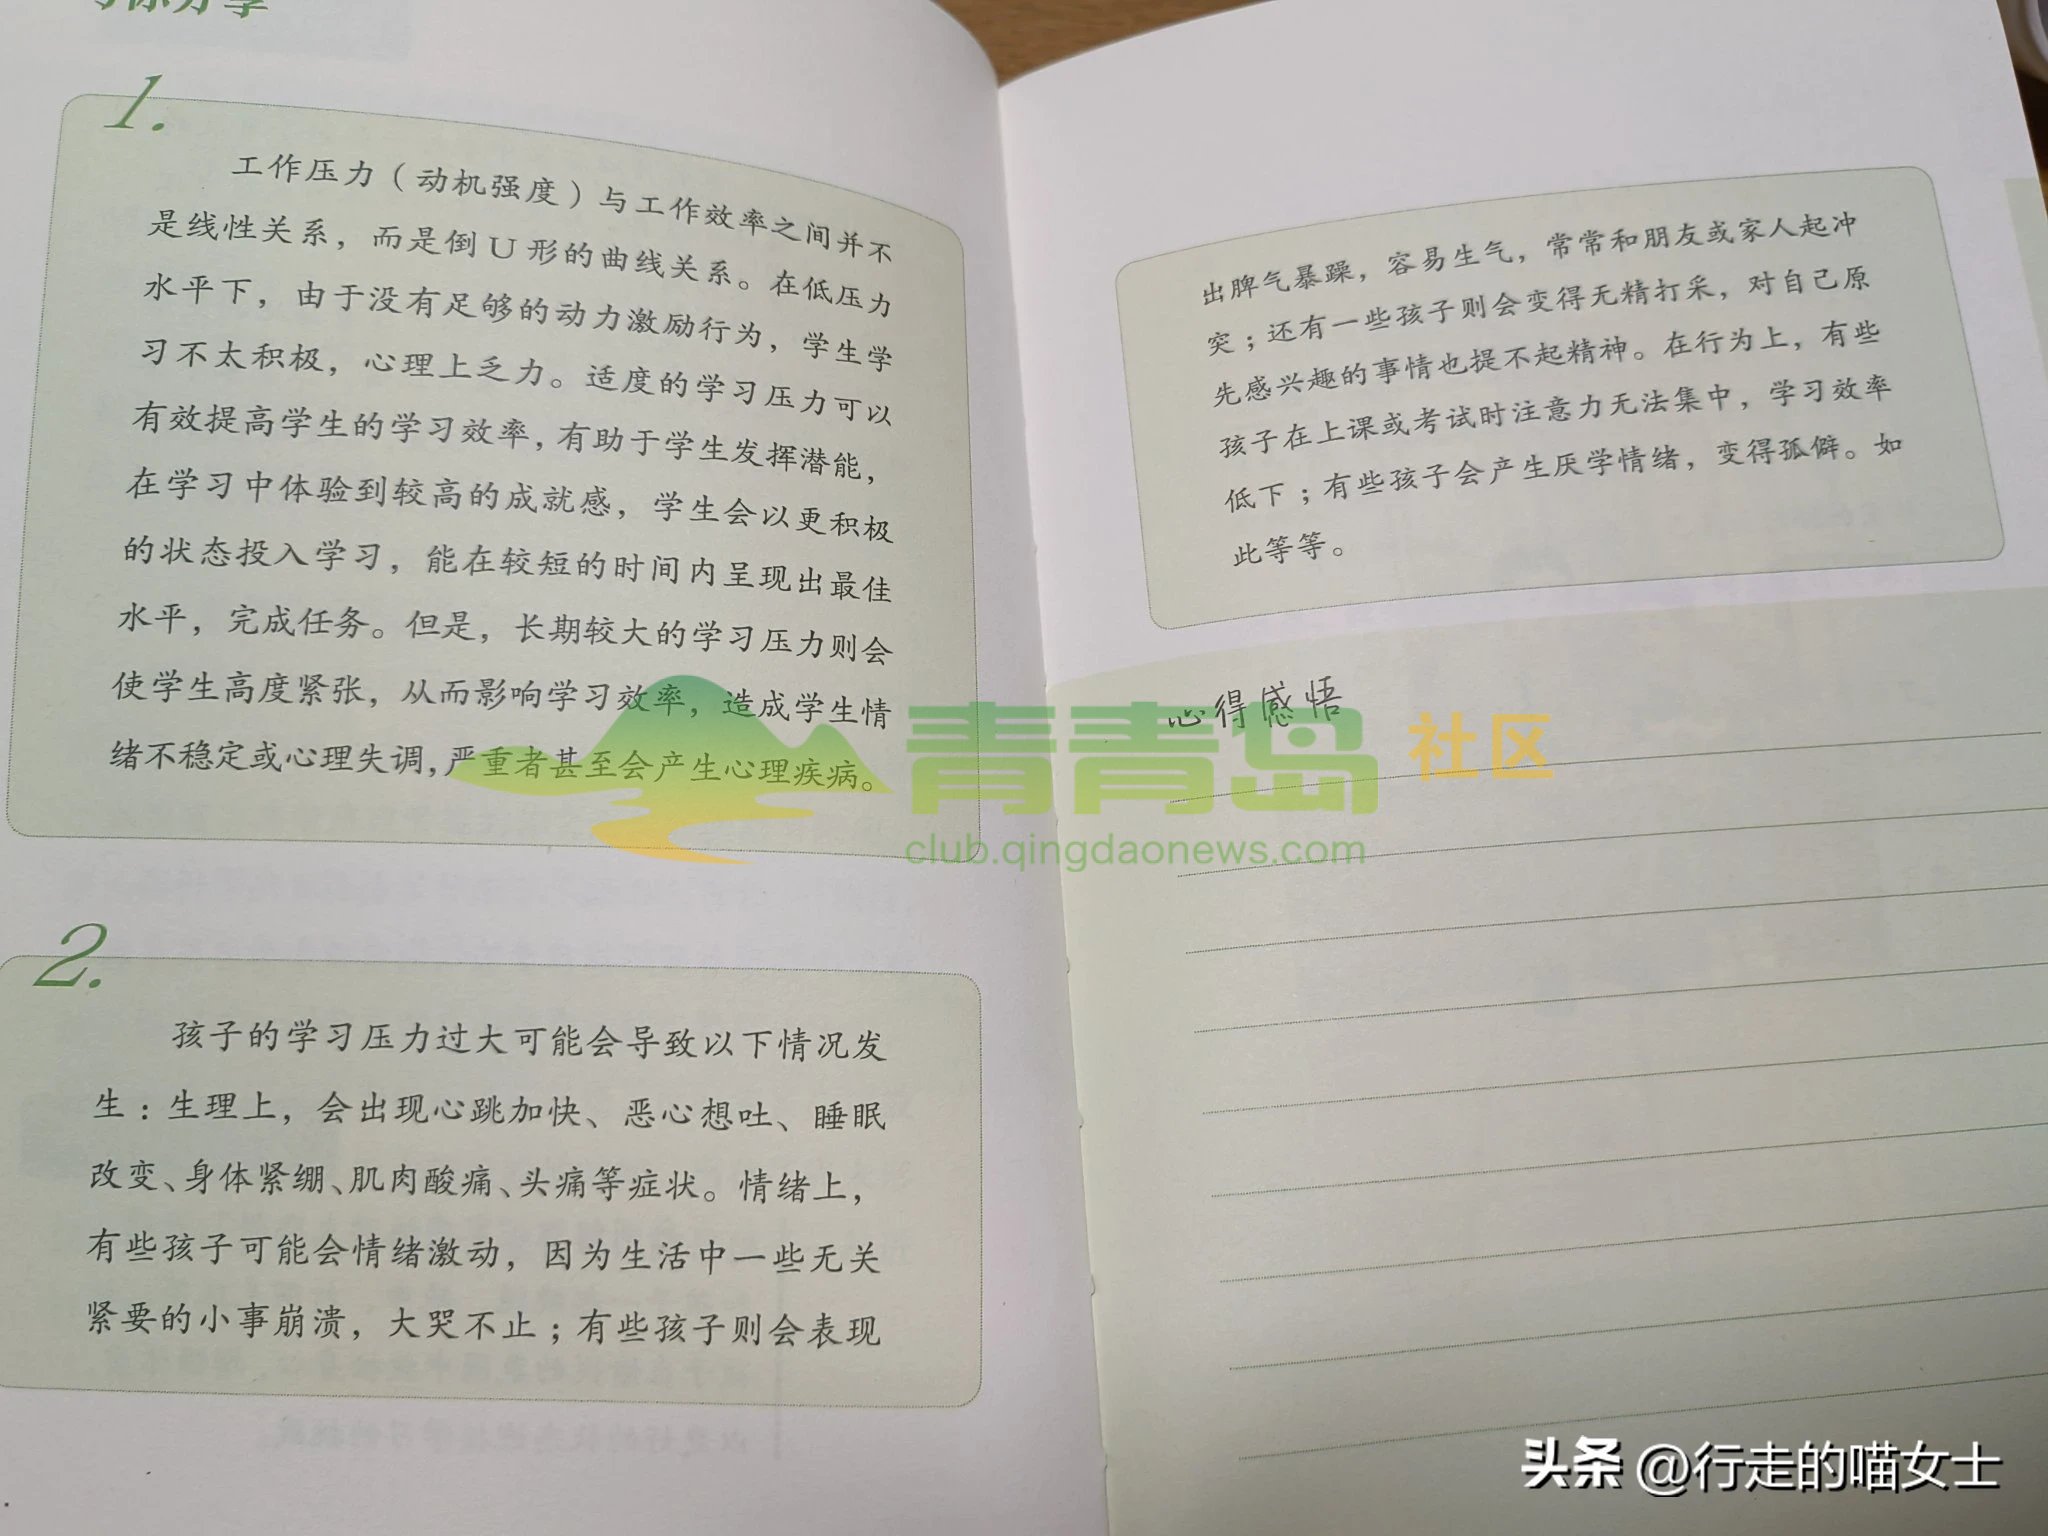 与你分享
1.
工作压力（动机强度）与工作效率之间并不
是线性关系，而是倒 U 形的曲线关系。在低压力
水平下，由于没有足够的动力激励行为，学生学
习不太积极，心理上乏力。适度的学习压力可以
有效提高学生的学习效率，有助于学生发挥潜能，
在学习中体验到较高的成就感，学生会以更积极
的状态投入学习，能在较短的时间内呈现出最佳
水平，完成任务。但是，长期较大的学习压力则会
使学生高度紧张，从而影响学习效率，造成学生情
绪不稳定或心理失调，严重者甚至会产生心理疾病。
2.
孩子的学习压力过大可能会导致以下情况发
生：生理上，会出现心跳加快、恶心想吐、睡眠
改变、身体紧绷、肌肉酸痛、头痛等症状。情绪上，
有些孩子可能会情绪激动，因为生活中一些无关
紧要的小事崩溃，大哭不止；有些孩子则会表现
出脾气暴躁，容易生气，常常和朋友或家人起冲
突；还有一些孩子则会变得无精打采，对自己原
先感兴趣的事情也提不起精神。在行为上，有些
孩子在上课或考试时注意力无法集中，学习效率
低下；有些孩子会产生厌学情绪，变得孤僻。如
此等等。
心得感悟
青青岛 社区
club.qingdaonews.com
头条 @行走的喵女士